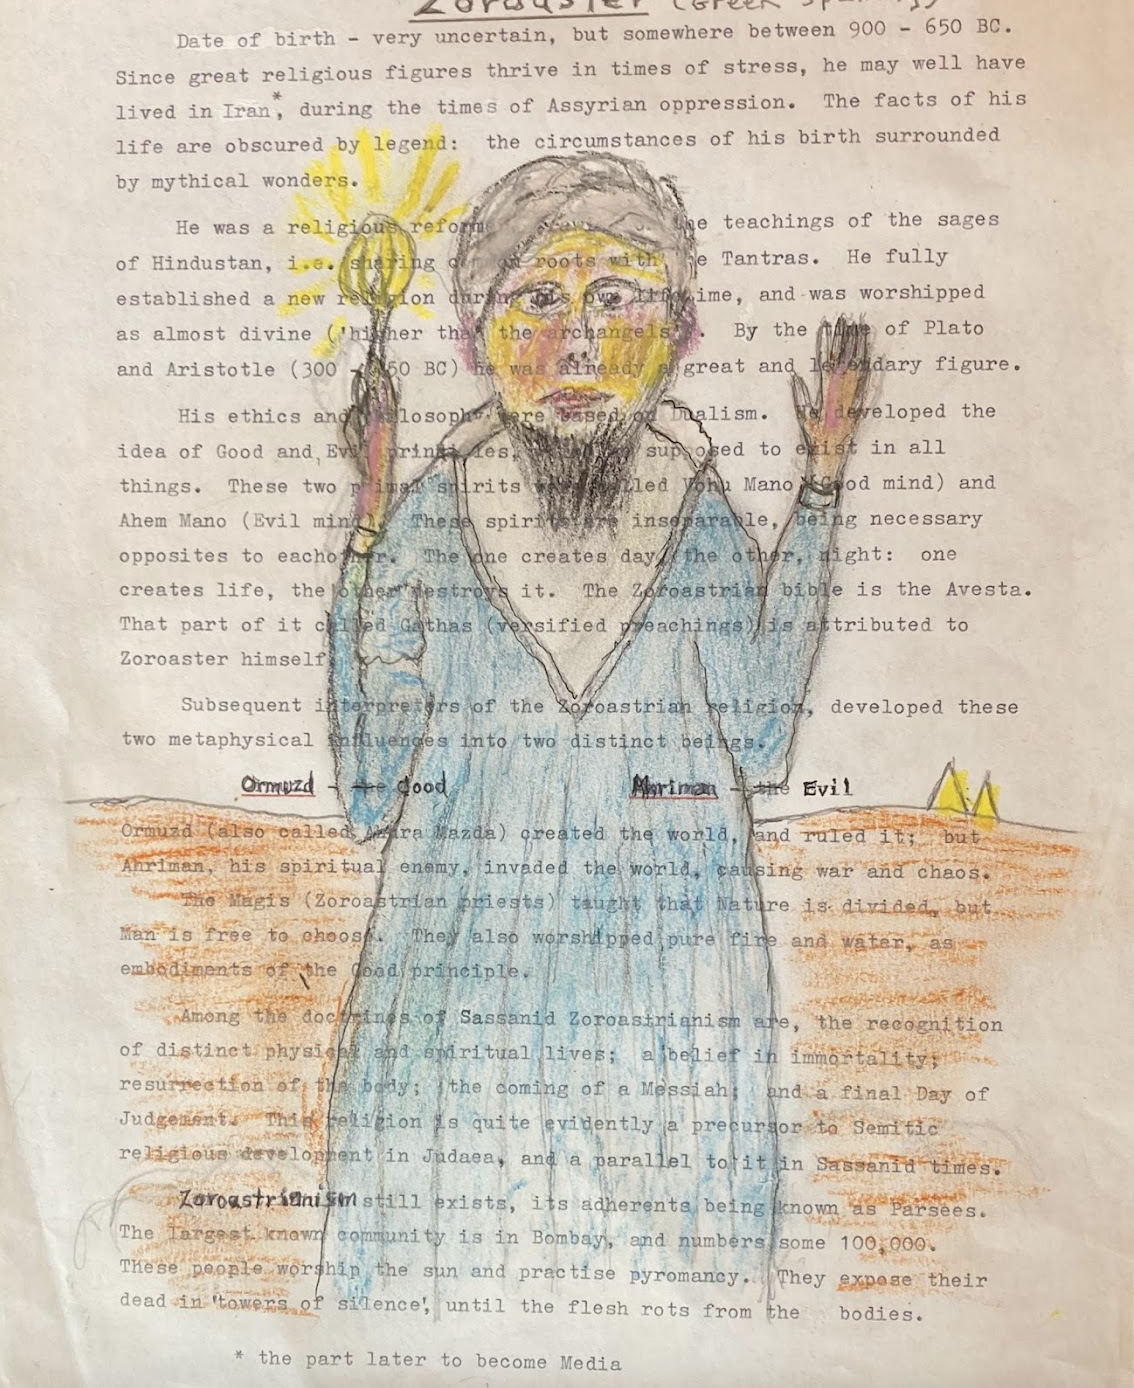 Zoroaster (Greek
Date of birth - very uncertain, but somewhere between 900 - 650 BC.
Since great religious figures thrive in times of stress, he may well have
lived in Iran*, during the times of Assyrian oppression. The facts of his
life are obscured by legend: the circumstances of his birth surrounded
by mythical wonders.
He was a religious reformer the teachings of the sages
of Hindustan, i.e. sharing common roots with the Tantras. He fully
established a new religion during his own lifetime, and was worshipped
as almost divine ('higher than the archangels'). By the time of Plato
and Aristotle (300 - 350 BC) he was already a great and legendary figure.
His ethics and philosophy were based on Dualism. He developed the
idea of Good and Evil principles, supposed to exist in all
things. These two primal spirits were called Vohu Mano (Good mind) and
Ahem Mano (Evil mind). These spirits are inseparable, being necessary
opposites to eachother. The one creates day, the other, night: one
creates life, the other destroys it. The Zoroastrian bible is the Avesta.
That part of it called Gathas (versified preachings) is attributed to
Zoroaster himself.
Subsequent interpreters of the Zoroastrian religion, developed these
two metaphysical influences into two distinct beings.
Ormuzd - the Good Ahriman - the Evil
Ormuzd (also called Ahura Mazda) created the world, and ruled it; but
Ahriman, his spiritual enemy, invaded the world, causing war and chaos.
The Magis (Zoroastrian priests) taught that Nature is divided, but
Man is free to choose. They also worshipped pure fire and water, as
embodiments of the Good principle.
Among the doctrines of Sassanid Zoroastrianism are, the recognition
of distinct physical and spiritual lives; a belief in immortality;
resurrection of the body; the coming of a Messiah; and a final Day of
Judgement. This religion is quite evidently a precursor to Semitic
religious development in Judaea, and a parallel to it in Sassanid times.
Zoroastrianism still exists, its adherents being known as Parsees.
The largest known community is in Bombay, and numbers some 100,000.
These people worship the sun and practise pyromancy. They expose their
dead in 'towers of silence', until the flesh rots from the bodies.
* the part later to become Media